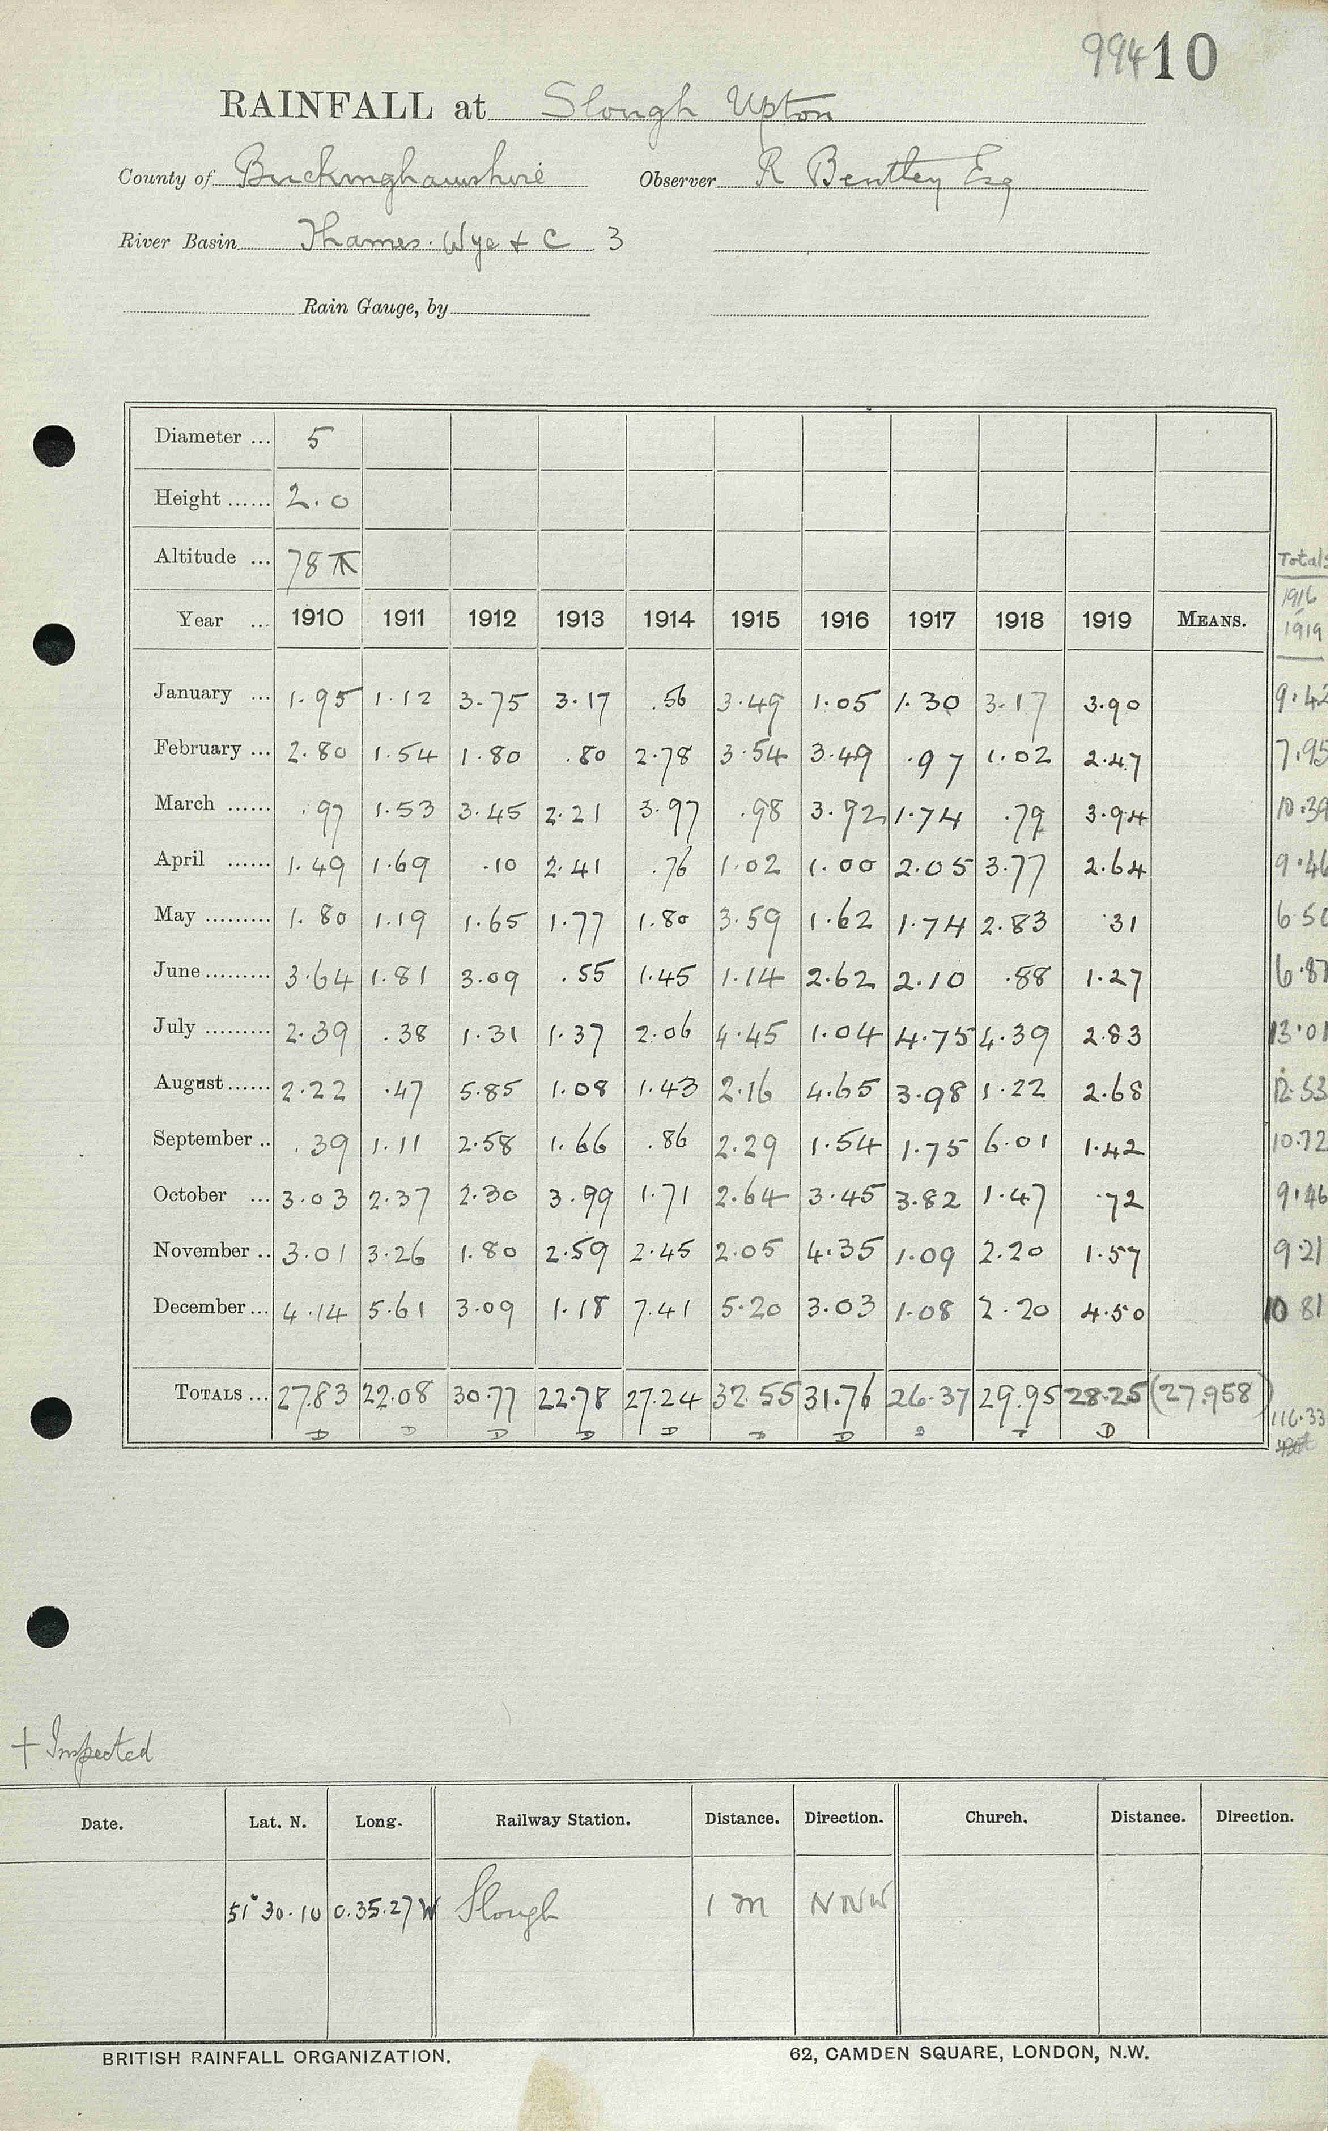 994 10
RAINFALL at Slough Upton
County of Buckinghamshire Observer R Bentley Esq
River Basin Thames. Wye & C 3
Rain Gauge, by
Diameter ... 5
Height ...... 2.0
Altitude ... 78
Totals
Year ... 1910 1911 1912 1913 1914 1915 1916 1917 1918 1919 MEANS. 1916 1919
January ... 1.95 1.12 3.75 3.17 .56 3.49 1.05 1.30 3.17 3.90 9.42
February ... 2.80 1.54 1.80 .80 2.78 3.54 3.49 .97 1.02 2.47 7.95
March ...... .97 1.53 3.45 2.21 3.97 .98 3.92 1.74 .79 3.94 10.39
April ...... 1.49 1.69 .10 2.41 .76 1.02 1.00 2.05 3.77 2.64 9.46
May ......... 1.80 1.19 1.65 1.77 1.80 3.59 1.62 1.74 2.83 .31 6.50
June ......... 3.64 1.81 3.09 .55 1.45 1.14 2.62 2.10 .88 1.27 6.87
July ......... 2.39 .38 1.31 1.37 2.06 4.45 1.04 4.75 4.39 2.83 13.01
August ...... 2.22 .47 5.85 1.08 1.43 2.16 4.65 3.98 1.22 2.68 12.53
September .. .39 1.11 2.58 1.66 .86 2.29 1.54 1.75 6.01 1.42 10.72
October ... 3.03 2.37 2.30 3.99 1.71 2.64 3.45 3.82 1.47 .72 9.46
November .. 3.01 3.26 1.80 2.59 2.45 2.05 4.35 1.09 2.20 1.57 9.21
December ... 4.14 5.61 3.09 1.18 7.41 5.20 3.03 1.08 2.20 4.50 10 81
TOTALS ... 27.83 22.08 30.77 22.78 27.24 32.55 31.76 26.37 29.95 28.25 (27.958) 116.33
+ Inspected
Date. Lat. N. Long. Railway Station. Distance. Direction. Church. Distance. Direction.
51° 30.10 0.35.27 W Slough 1 m NNW
BRITISH RAINFALL ORGANIZATION. 62, CAMDEN SQUARE, LONDON, N.W.